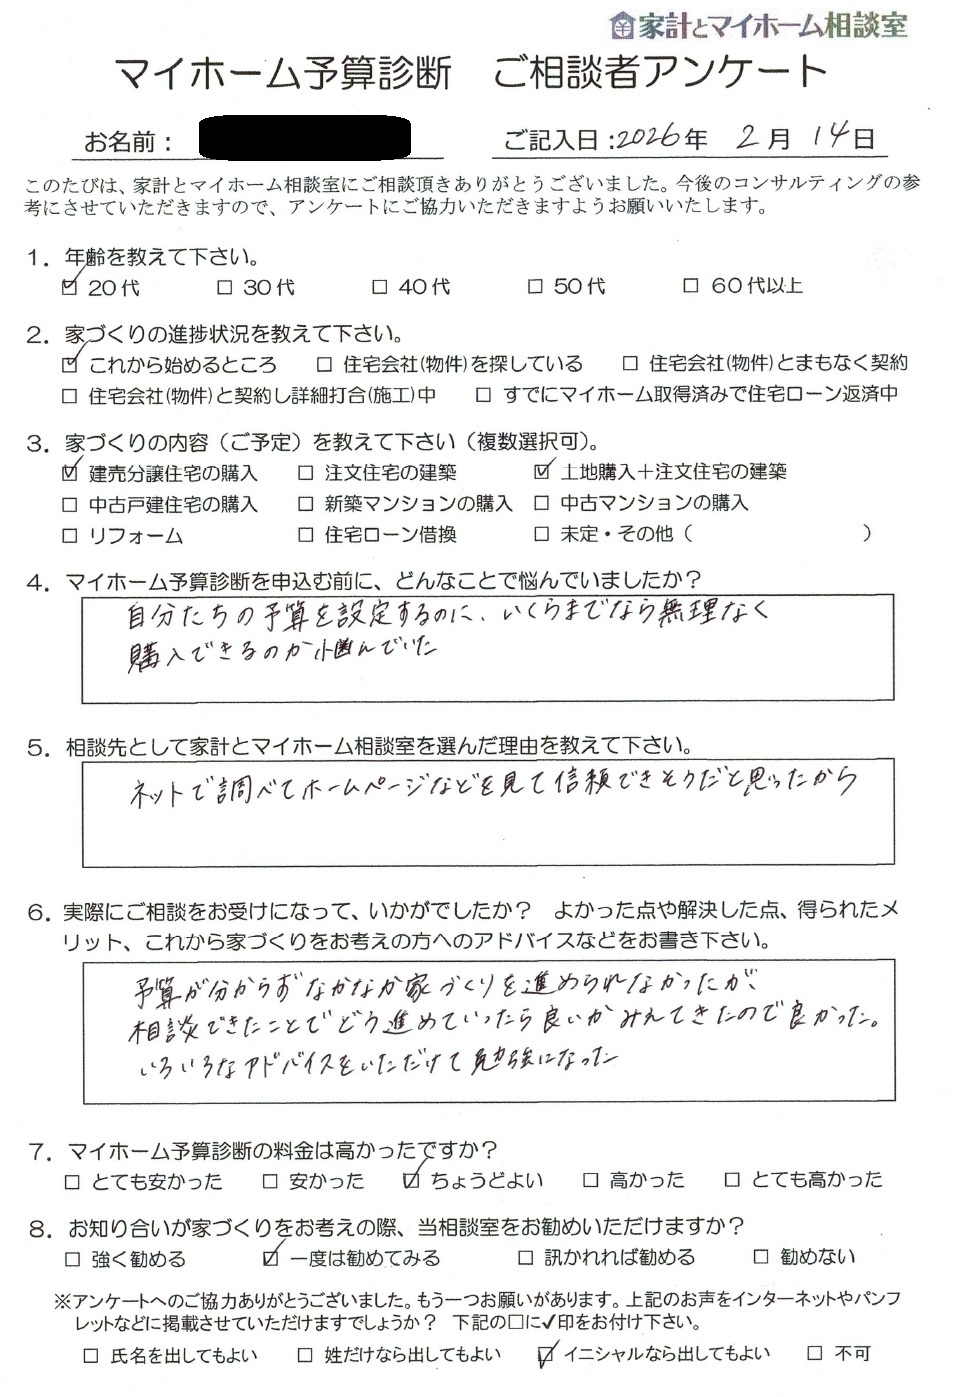 家計とマイホーム相談室
マイホーム予算診断　ご相談者アンケート
お名前：
ご記入日：2026年 2月 14日
このたびは、家計とマイホーム相談室にご相談頂きありがとうございました。今後のコンサルティングの参
考にさせていただきますので、アンケートにご協力いただきますようお願いいたします。
1．年齢を教えて下さい。
☑ 20代　□ 30代　□ 40代　□ 50代　□ 60代以上
2．家づくりの進捗状況を教えて下さい。
☑ これから始めるところ　□ 住宅会社(物件)を探している　□ 住宅会社(物件)とまもなく契約
□ 住宅会社(物件)と契約し詳細打合(施工)中　□ すでにマイホーム取得済みで住宅ローン返済中
3．家づくりの内容（ご予定）を教えて下さい（複数選択可）。
☑ 建売分譲住宅の購入　□ 注文住宅の建築　☑ 土地購入＋注文住宅の建築
□ 中古戸建住宅の購入　□ 新築マンションの購入　□ 中古マンションの購入
□ リフォーム　□ 住宅ローン借換　□ 未定・その他（　　　　　　　　）
4．マイホーム予算診断を申込む前に、どんなことで悩んでいましたか？
自分たちの予算を設定するのに、いくらまでなら無理なく
購入できるのか悩んでいた
5．相談先として家計とマイホーム相談室を選んだ理由を教えて下さい。
ネットで調べてホームページなどを見て信頼できそうだと思ったから
6．実際にご相談をお受けになって、いかがでしたか？　よかった点や解決した点、得られたメ
リット、これから家づくりをお考えの方へのアドバイスなどをお書き下さい。
予算が分からずなかなか家づくりを進められなかったが、
相談できたことでどう進めていったら良いかみえてきたので良かった。
いろいろなアドバイスをいただけて勉強になった
7．マイホーム予算診断の料金は高かったですか？
□ とても安かった　□ 安かった　☑ ちょうどよい　□ 高かった　□ とても高かった
8．お知り合いが家づくりをお考えの際、当相談室をお勧めいただけますか？
□ 強く勧める　☑ 一度は勧めてみる　□ 訊かれれば勧める　□ 勧めない
※アンケートへのご協力ありがとうございました。もう一つお願いがあります。上記のお声をインターネットやパンフ
レットなどに掲載させていただけますでしょうか？　下記の□に✓印をお付け下さい。
□ 氏名を出してもよい　□ 姓だけなら出してもよい　☑ イニシャルなら出してもよい　□ 不可